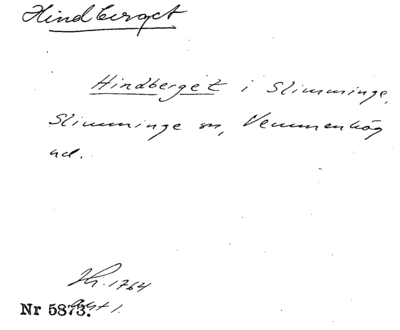 Hindberget
Hindberget i Slimminge,
Slimminge sn, Vemmenhög
hd.
1764
Nr 5873.